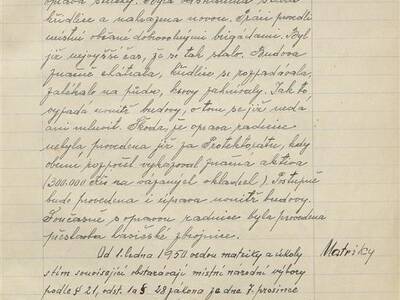 oprava střechy. Byla odstraněna stará
křidlice a nahrazena novou. Práci provedli
místní občané dobrovolnými brigádami. Byl
již nejvyšší čas, že se tak stalo. Budova
značně chátrala, křidlice se rozpadávala,
zatékalo na půdu, krovy zahnívaly. Jak to
vypadá uvnitř budovy, o tom se již nedá
ani mluvit. Škoda, že oprava radnice
nebyla provedena již za Protektorátu, kdy
obecní rozpočet vykazoval značná aktiva
(300.000 Kčs na vázaných vkladech). Postupně
bude provedena i úprava uvnitř budovy.
Současně s opravou radnice byla provedena
přestavba hasičské zbrojnice.
Od 1. ledna 1950 vedou matriky a úkoly
Matriky
s tím související obstarávají místní národní výbory
podle § 21, odst. 1 a § 28 zákona ze dne 7. prosince